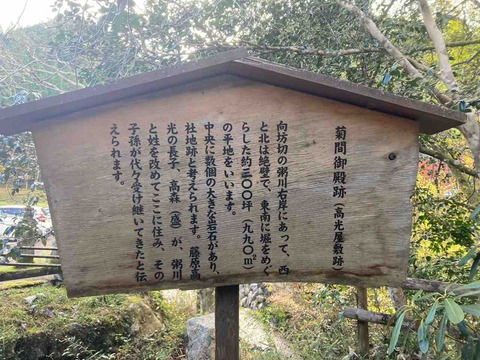 菊間御殿跡（高光屋敷跡）
向坊切の粥川右岸にあって、西
と北は絶壁で、東南に堀をめぐ
らした約三〇〇坪（九九〇m²）
の平地をいいます。
中央に数個の大きな岩石があり、
社地跡と考えられます。藤原高
光の長子、高森（盛）が、粥川
と姓を改めてここに住み、その
子孫が代々受け継いできたと伝
えられます。